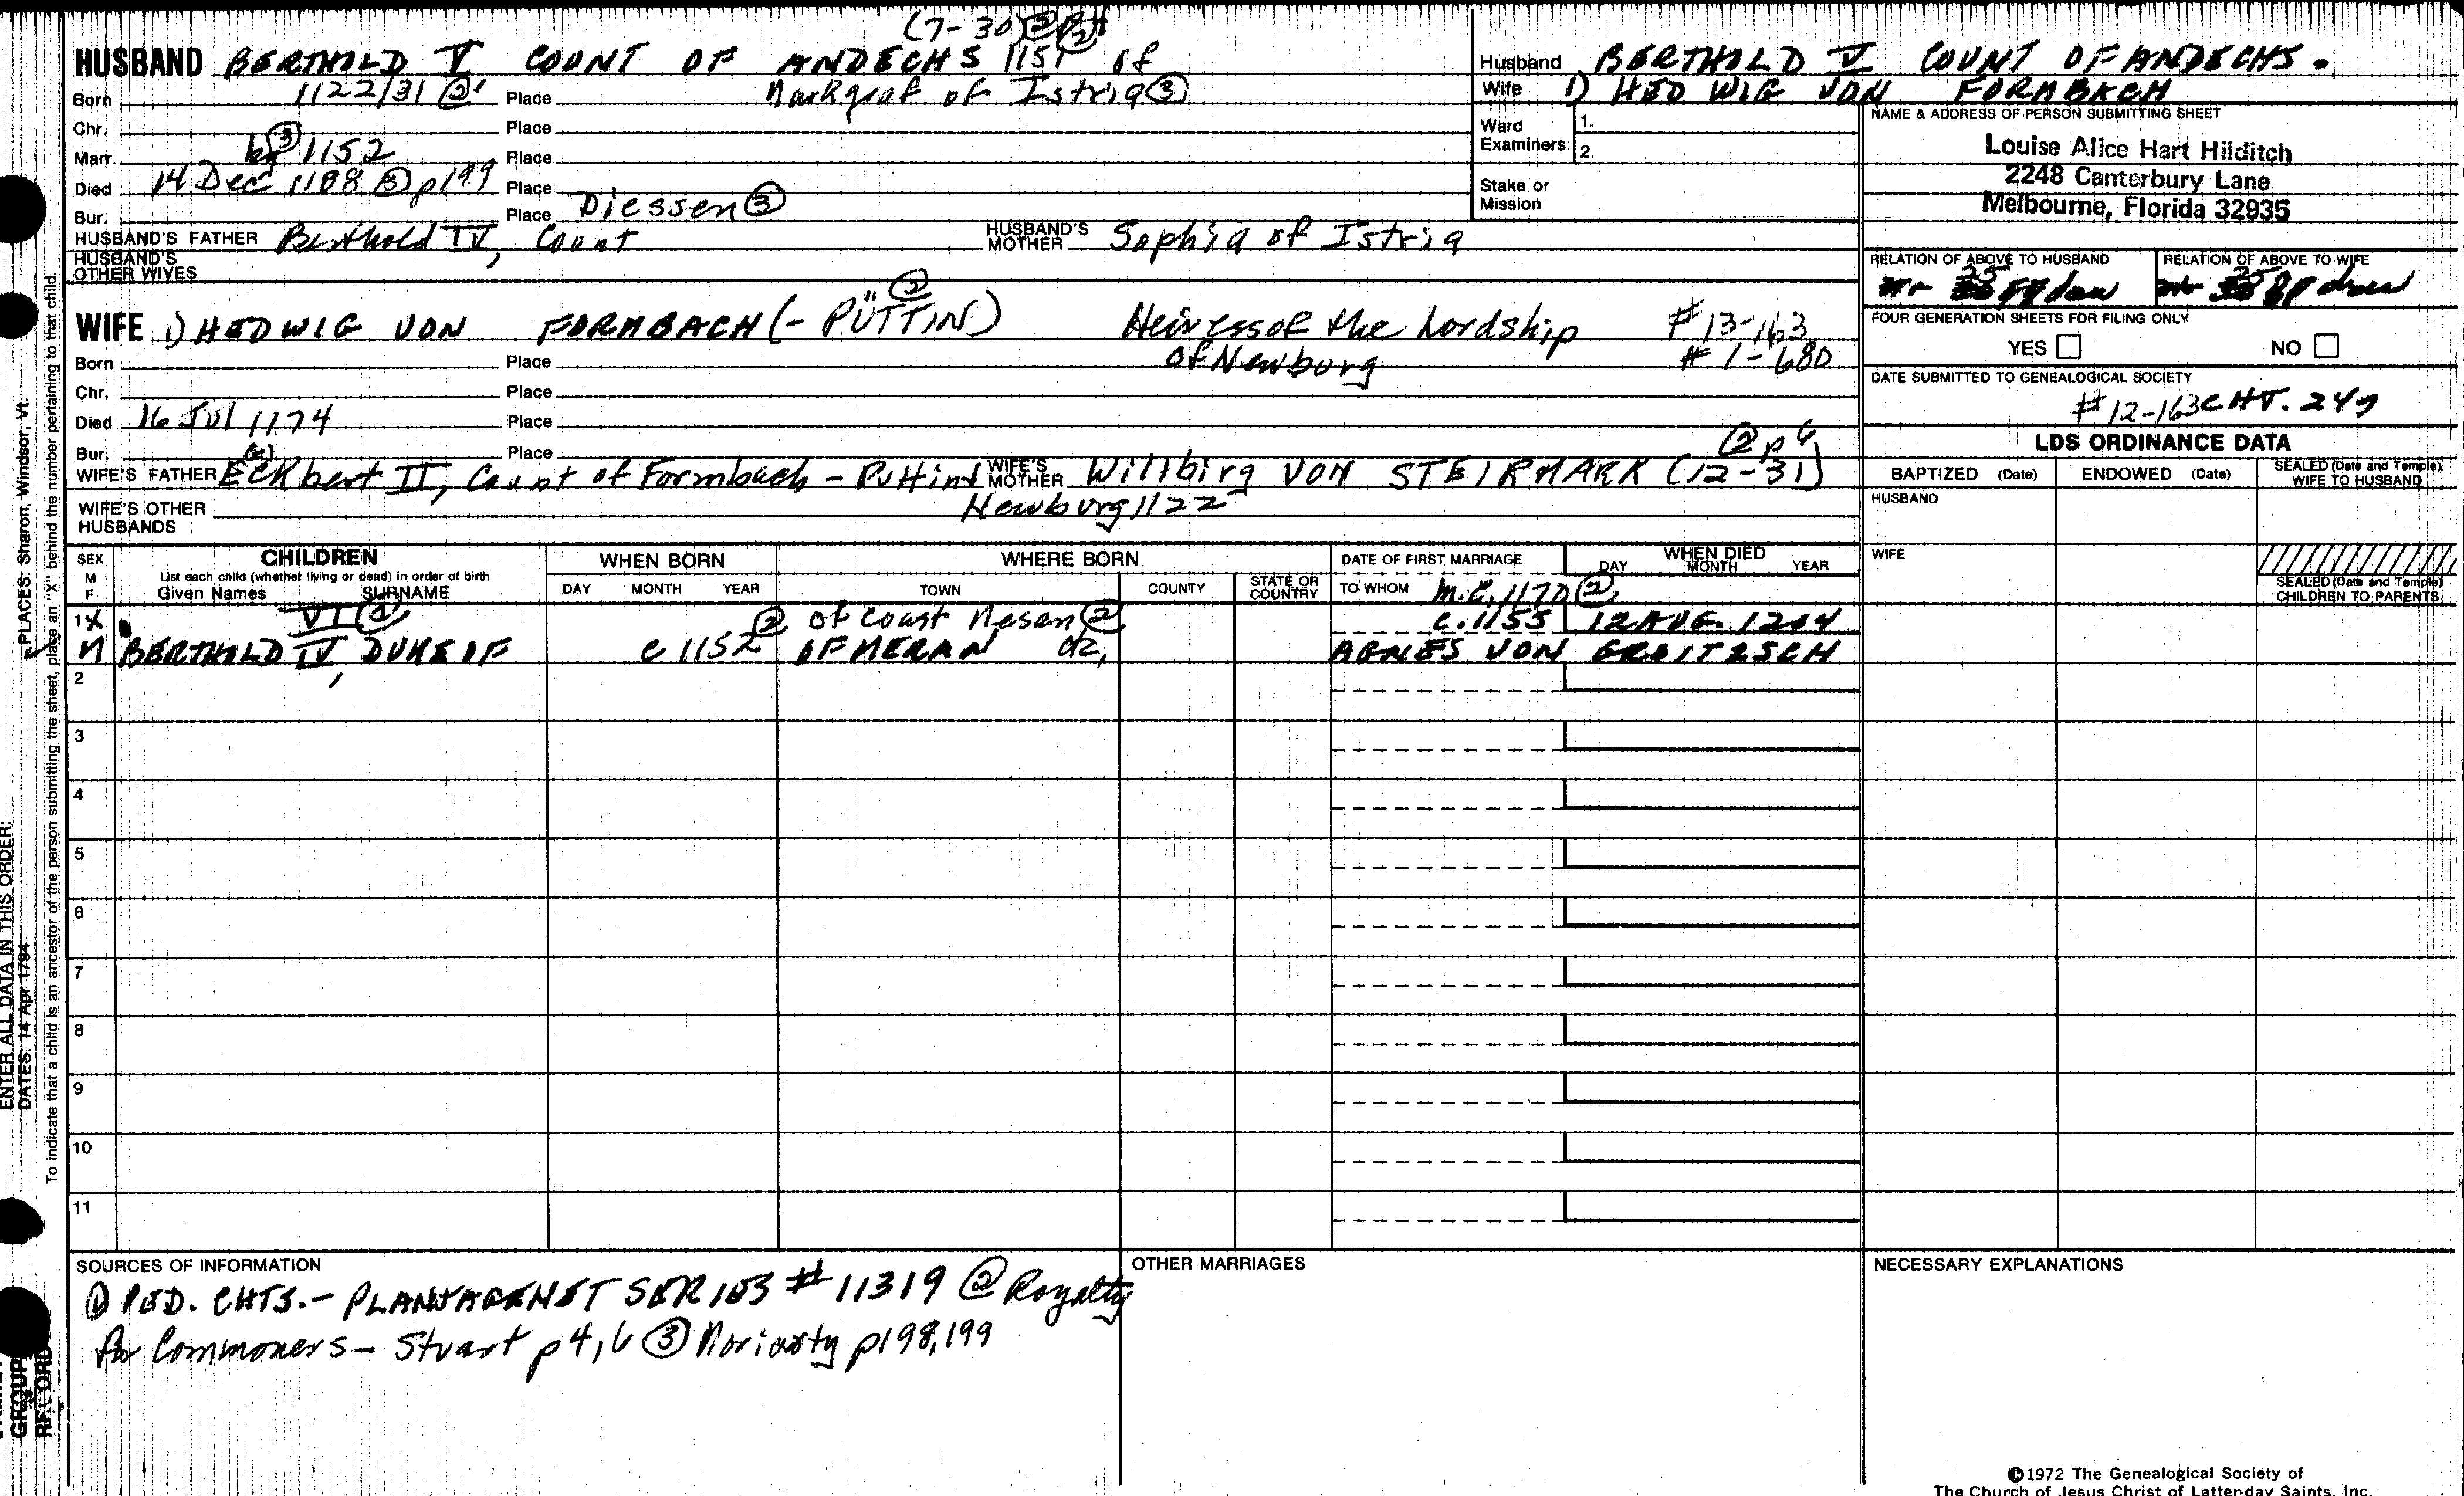 (7-30) ②
HUSBAND BERTHOLD V COUNT OF ANDECHS 1151 of
Born 1122/31 ② Place Markgraf of Istria ③
Chr. Place
Marr. by ③ 1152 Place
Died 14 Dec 1188 ③ p199 Place
Bur. Place Diessen ③
HUSBAND'S FATHER Berthold IV, Count HUSBAND'S MOTHER Sophia of Istria
HUSBAND'S OTHER WIVES
Husband BERTHOLD V COUNT OF ANDECHS.
Wife 1) HEDWIG VON FORMBACH
Ward Examiners: 1.
2.
Stake or Mission
NAME & ADDRESS OF PERSON SUBMITTING SHEET
Louise Alice Hart Hilditch
2248 Canterbury Lane
Melbourne, Florida 32935
RELATION OF ABOVE TO HUSBAND RELATION OF ABOVE TO WIFE
25 25
FOUR GENERATION SHEETS FOR FILING ONLY
YES NO
DATE SUBMITTED TO GENEALOGICAL SOCIETY
#12-163 CHT. 247
WIFE 1) HEDWIG VON FORMBACH (- PÜTTIN) ② Heiress of the Lordship #13-163
of Newburg #1-680
Born Place
Chr. Place
Died 16 Jul 1174 Place
Bur. Place ② p 6
WIFE'S FATHER Eckbert II, Count of Formbach - Puttind WIFE'S MOTHER Willbirg VON STEIRMARK (12-31)
Newburg 1122
WIFE'S OTHER HUSBANDS
LDS ORDINANCE DATA
BAPTIZED (Date) ENDOWED (Date) SEALED (Date and Temple) WIFE TO HUSBAND
HUSBAND
WIFE
SEALED (Date and Temple) CHILDREN TO PARENTS
SEX M F CHILDREN WHEN BORN WHERE BORN DATE OF FIRST MARRIAGE WHEN DIED
List each child (whether living or dead) in order of birth
Given Names SURNAME DAY MONTH YEAR TOWN COUNTY STATE OR COUNTRY TO WHOM DAY MONTH YEAR
m.c. 1170 ②
1 X VI ② ② of Count Mesan ② c. 1155 12 AUG. 1204
M BERTHOLD IV, DUKE OF c 1152 OF MERAN AGNES VON GROITZSCH
2
3
4
5
6
7
8
9
10
11
SOURCES OF INFORMATION
① PED. CHTS. - PLANTAGENET SERIES #11319 ② Royalty
for Commoners - Stuart p 4, 6 ③ Moriarty p198, 199
OTHER MARRIAGES
NECESSARY EXPLANATIONS
©1972 The Genealogical Society of
The Church of Jesus Christ of Latter-day Saints, Inc.
ENTER ALL DATA IN THIS ORDER:
DATES: 14 Apr 1794 PLACES: Sharon, Windsor, Vt.
To indicate that a child is an ancestor of the person submitting the sheet, place an "X" behind the number pertaining to that child.
GROUP
RECORD